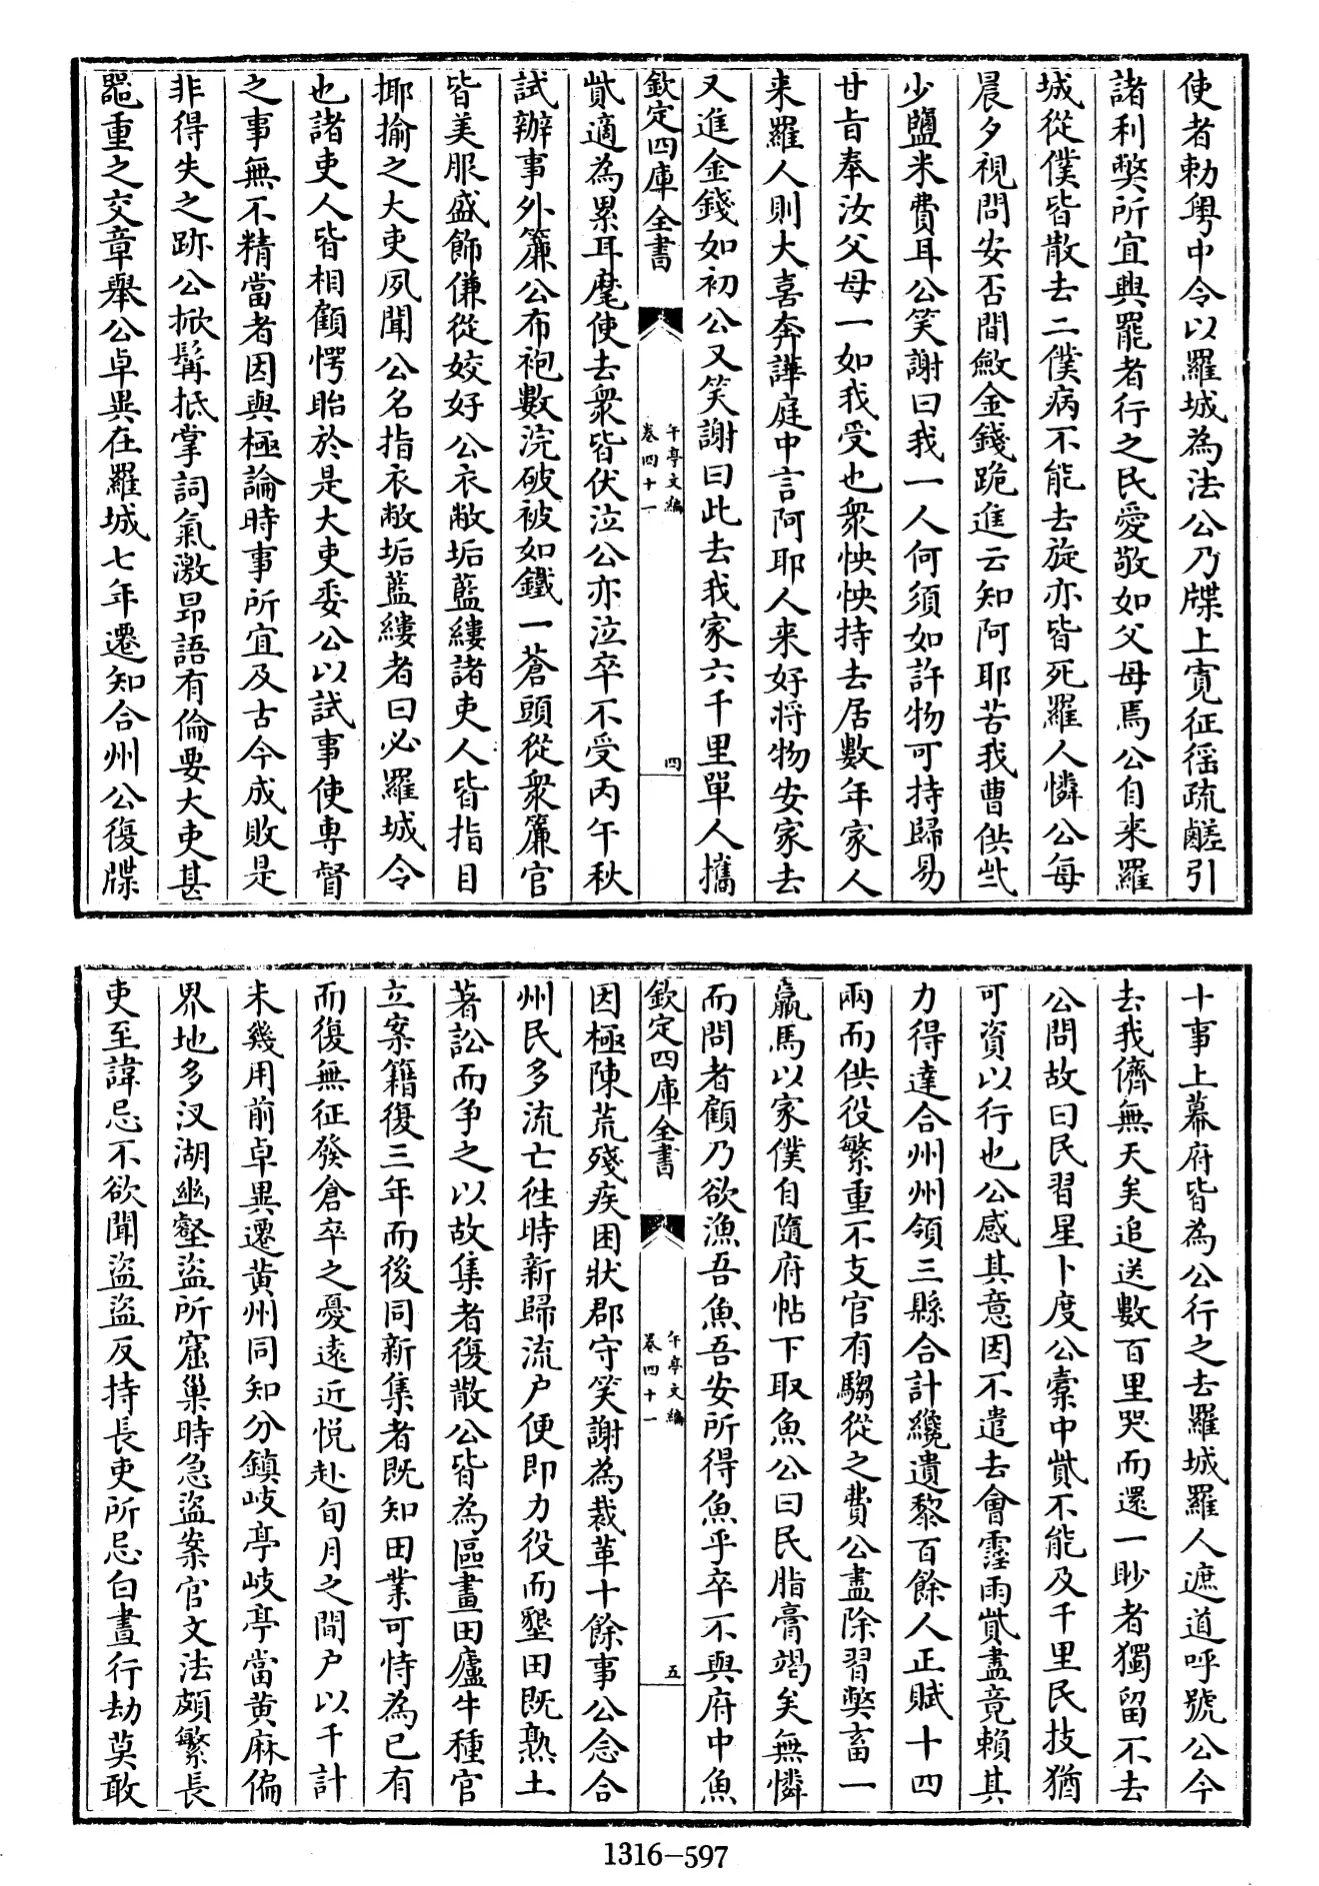 使者勅粤中令以羅城為法公乃牒上寛征徭疏鹺引
諸利獘所宜興罷者行之民愛敬如父母焉公自来羅
城從僕皆散去二僕病不能去旋亦皆死羅人憐公每
晨夕視問安否間斂金錢跪進云知阿耶苦我曹供些
少鹽米費耳公笑謝曰我一人何須如許物可持歸易
甘㫖奉汝父母一如我受也衆怏怏持去居數年家人
来羅人則大喜奔譁庭中言阿耶人来好将物安家去
又進金錢如初公又笑謝曰此去我家六千里單人攜
欽定四庫全書
午亭文編
卷四十一
四
貲適為累耳麾使去衆皆伏泣公亦泣卒不受丙午秋
試辦事外簾公布袍數浣破被如鐵一蒼頭從衆簾官
皆美服盛飾傔從姣好公衣敝垢藍縷諸吏人皆指目
揶揄之大吏夙聞公名指衣敝垢藍縷者曰必羅城令
也諸吏人皆相顧愕眙於是大吏委公以試事使専督
之事無不精當者因與極論時事所宜及古今成敗是
非得失之跡公掀髯抵掌詞氣激昂語有倫要大吏甚
噐重之交章舉公卓異在羅城七年遷知合州公復牒
十事上幕府皆為公行之去羅城羅人遮道呼號公今
去我儕無天矣追送數百里哭而還一眇者獨留不去
公問故曰民習星卜度公槖中貲不能及千里民技猶
可資以行也公感其意因不遣去會霪雨貲盡竟賴其
力得達合州州領三縣合計纔遺黎百餘人正賦十四
兩而供役繁重不支官有騶從之費公盡除習獘畜一
羸馬以家僕自隨府帖下取魚公曰民脂膏竭矣無憐
而問者顧乃欲漁吾魚吾安所得魚乎卒不與府中魚
欽定四庫全書
午亭文編
卷四十一
五
因極陳荒殘疾困狀郡守笑謝為裁革十餘事公念合
州民多流亡徃時新歸流户便即力役而墾田既熟土
著訟而争之以故集者復散公皆為區畫田廬牛種官
立案籍復三年而後同新集者既知田業可恃為已有
而復無征發倉卒之憂遠近悦赴旬月之間户以千計
未幾用前卓異遷黄州同知分鎮岐亭岐亭當黄麻偏
界地多汊湖幽壑盗所窟巢時急盗案官文法頗繁長
吏至諱忌不欲聞盗盗反持長吏所忌白晝行劫莫敢
1316-597